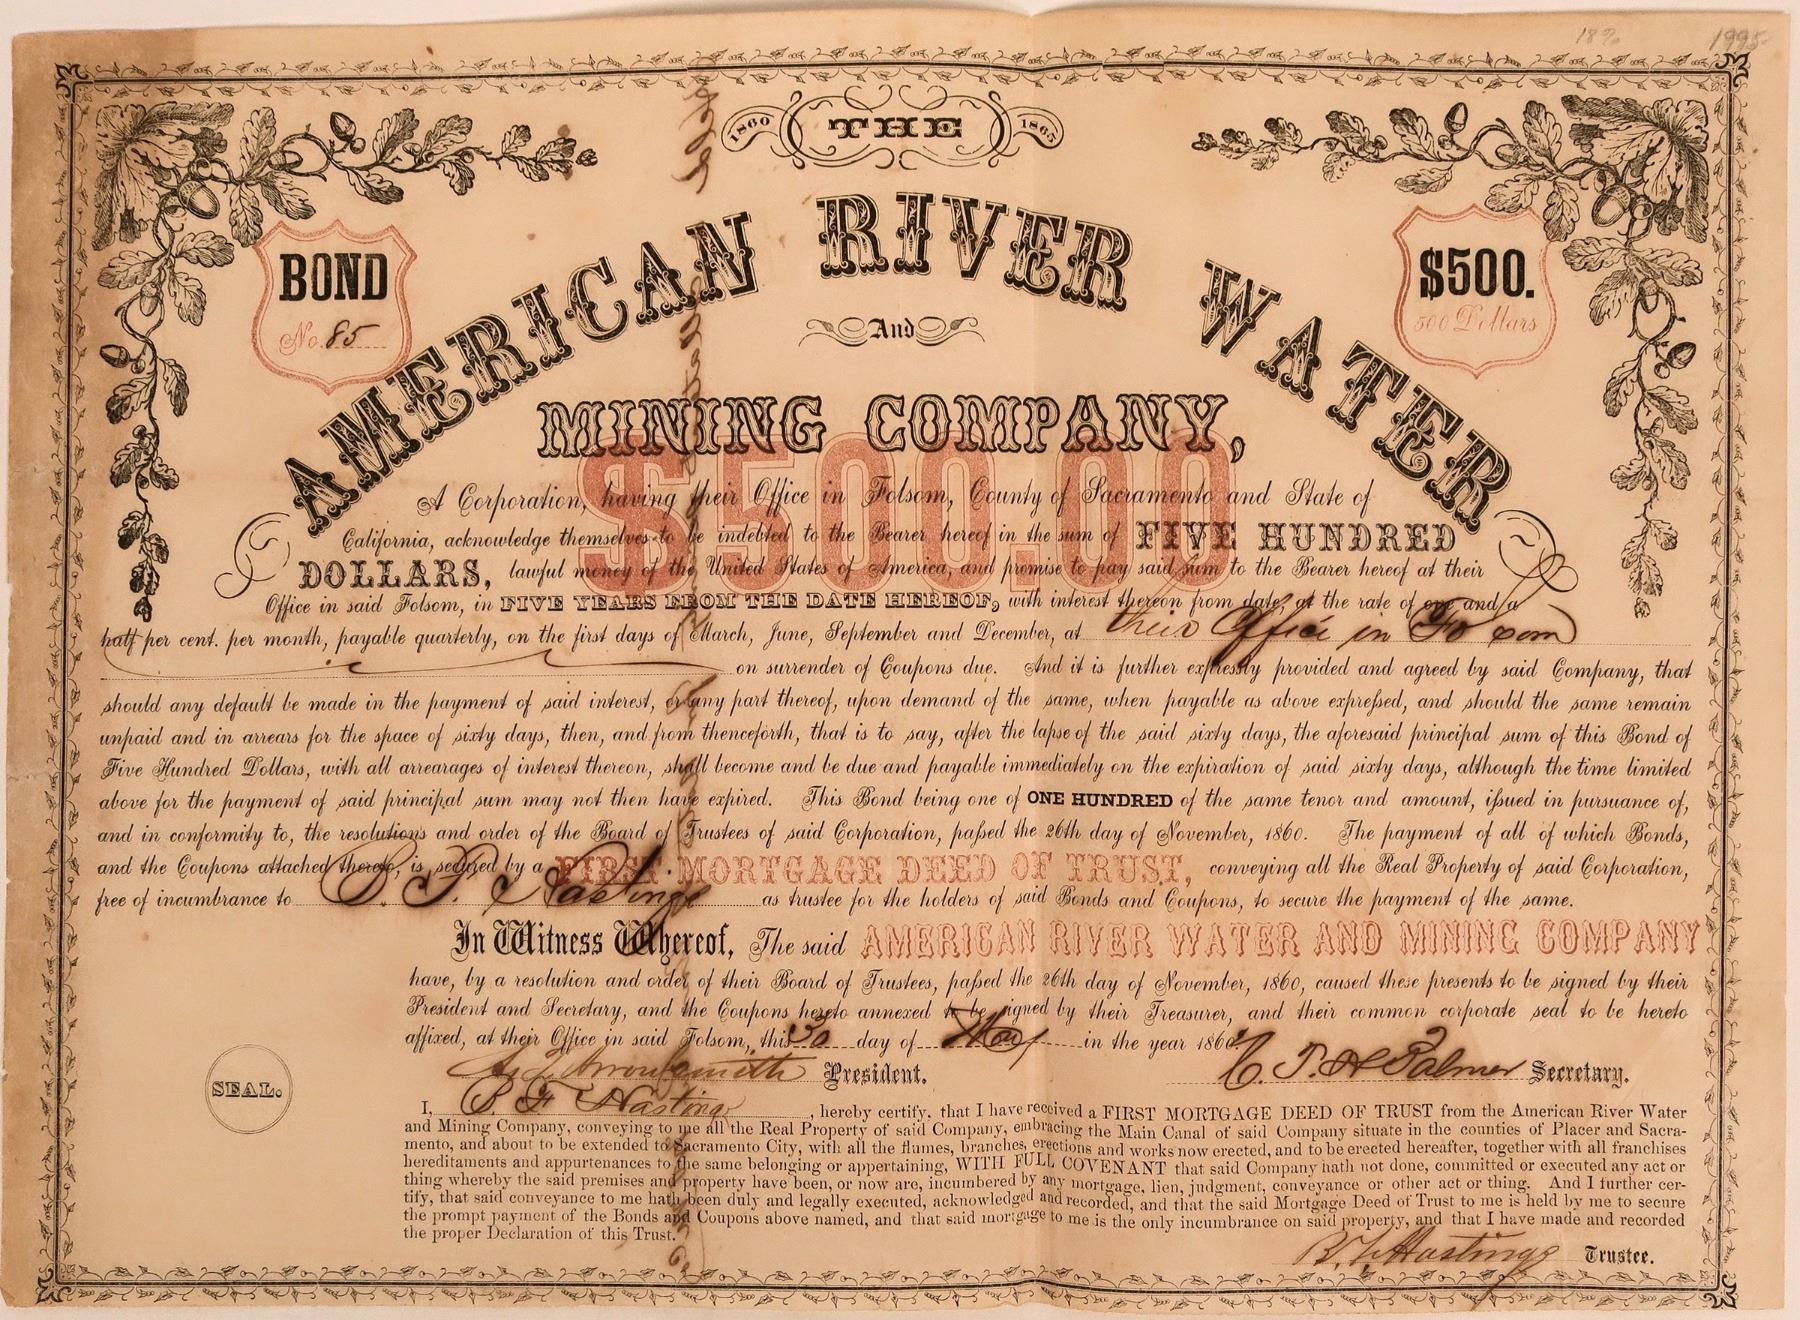 1995
1860 THE 1865
AMERICAN RIVER WATER
BOND
No. 85
$500.
500 Dollars
And
MINING COMPANY,
$500.00
A Corporation, having their Office in Folsom, County of Sacramento and State of
California, acknowledge themselves to be indebted to the Bearer hereof in the sum of FIVE HUNDRED
DOLLARS, lawful money of the United States of America, and promise to pay said sum to the Bearer hereof at their
Office in said Folsom, in FIVE YEARS FROM THE DATE HEREOF, with interest thereon from date, at the rate of one and a
half per cent. per month, payable quarterly, on the first days of March, June, September and December, at their Office in Folsom
on surrender of Coupons due. And it is further expressly provided and agreed by said Company, that
should any default be made in the payment of said interest, or any part thereof, upon demand of the same, when payable as above expressed, and should the same remain
unpaid and in arrears for the space of sixty days, then, and from thenceforth, that is to say, after the lapse of the said sixty days, the aforesaid principal sum of this Bond of
Five Hundred Dollars, with all arrearages of interest thereon, shall become and be due and payable immediately on the expiration of said sixty days, although the time limited
above for the payment of said principal sum may not then have expired. This Bond being one of ONE HUNDRED of the same tenor and amount, issued in pursuance of,
and in conformity to, the resolutions and order of the Board of Trustees of said Corporation, passed the 26th day of November, 1860. The payment of all of which Bonds,
and the Coupons attached thereto, is secured by a FIRST MORTGAGE DEED OF TRUST, conveying all the Real Property of said Corporation,
free of incumbrance to B. F. Hastings as trustee for the holders of said Bonds and Coupons, to secure the payment of the same.
In Witness Whereof, The said AMERICAN RIVER WATER AND MINING COMPANY
have, by a resolution and order of their Board of Trustees, passed the 26th day of November, 1860, caused these presents to be signed by their
President and Secretary, and the Coupons hereto annexed to be signed by their Treasurer, and their common corporate seal to be hereto
affixed, at their Office in said Folsom, this 30 day of Nov in the year 1860.
Arrowsmith President. C. T. H Palmer Secretary.
SEAL.
I, B F Hastings, hereby certify, that I have received a FIRST MORTGAGE DEED OF TRUST from the American River Water
and Mining Company, conveying to me all the Real Property of said Company, embracing the Main Canal of said Company situate in the counties of Placer and Sacra-
mento, and about to be extended to Sacramento City, with all the flumes, branches, erections and works now erected, and to be erected hereafter, together with all franchises
hereditaments and appurtenances to the same belonging or appertaining, WITH FULL COVENANT that said Company hath not done, committed or executed any act or
thing whereby the said premises and property have been, or now are, incumbered by any mortgage, lien, judgment, conveyance or other act or thing. And I further cer-
tify, that said conveyance to me hath been duly and legally executed, acknowledged and recorded, and that the said Mortgage Deed of Trust to me is held by me to secure
the prompt payment of the Bonds and Coupons above named, and that said mortgage to me is the only incumbrance on said property, and that I have made and recorded
the proper Declaration of this Trust.
B. F. Hastings Trustee.